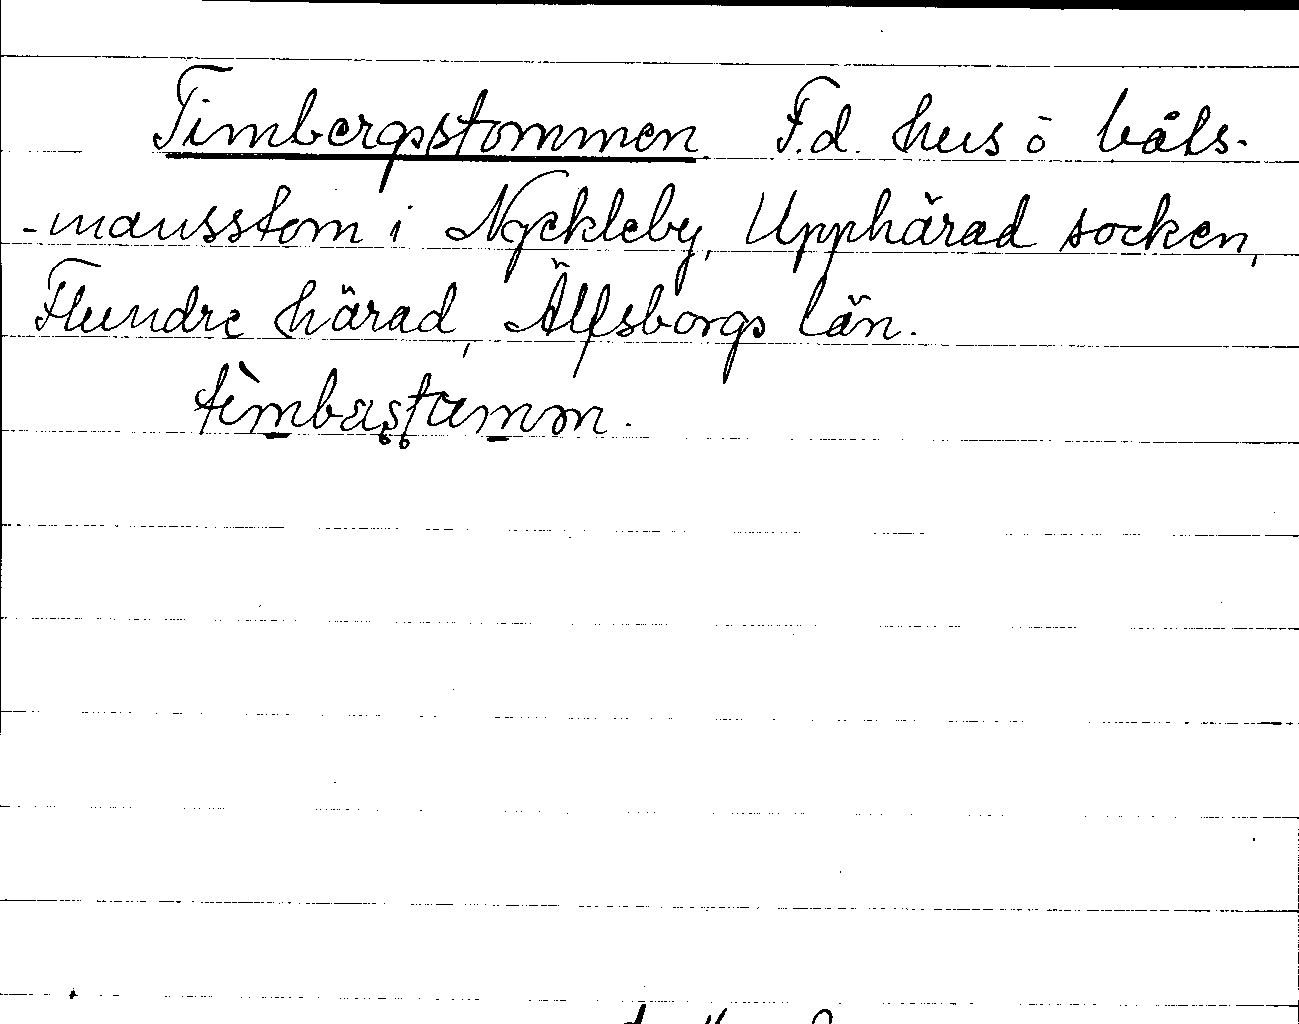 Timbergsstommen F.d. hus å båts-
-mansstom i Nyckleby, Upphärad socken,
Flundre härad, Älfsborgs län.
tìmbastamm.